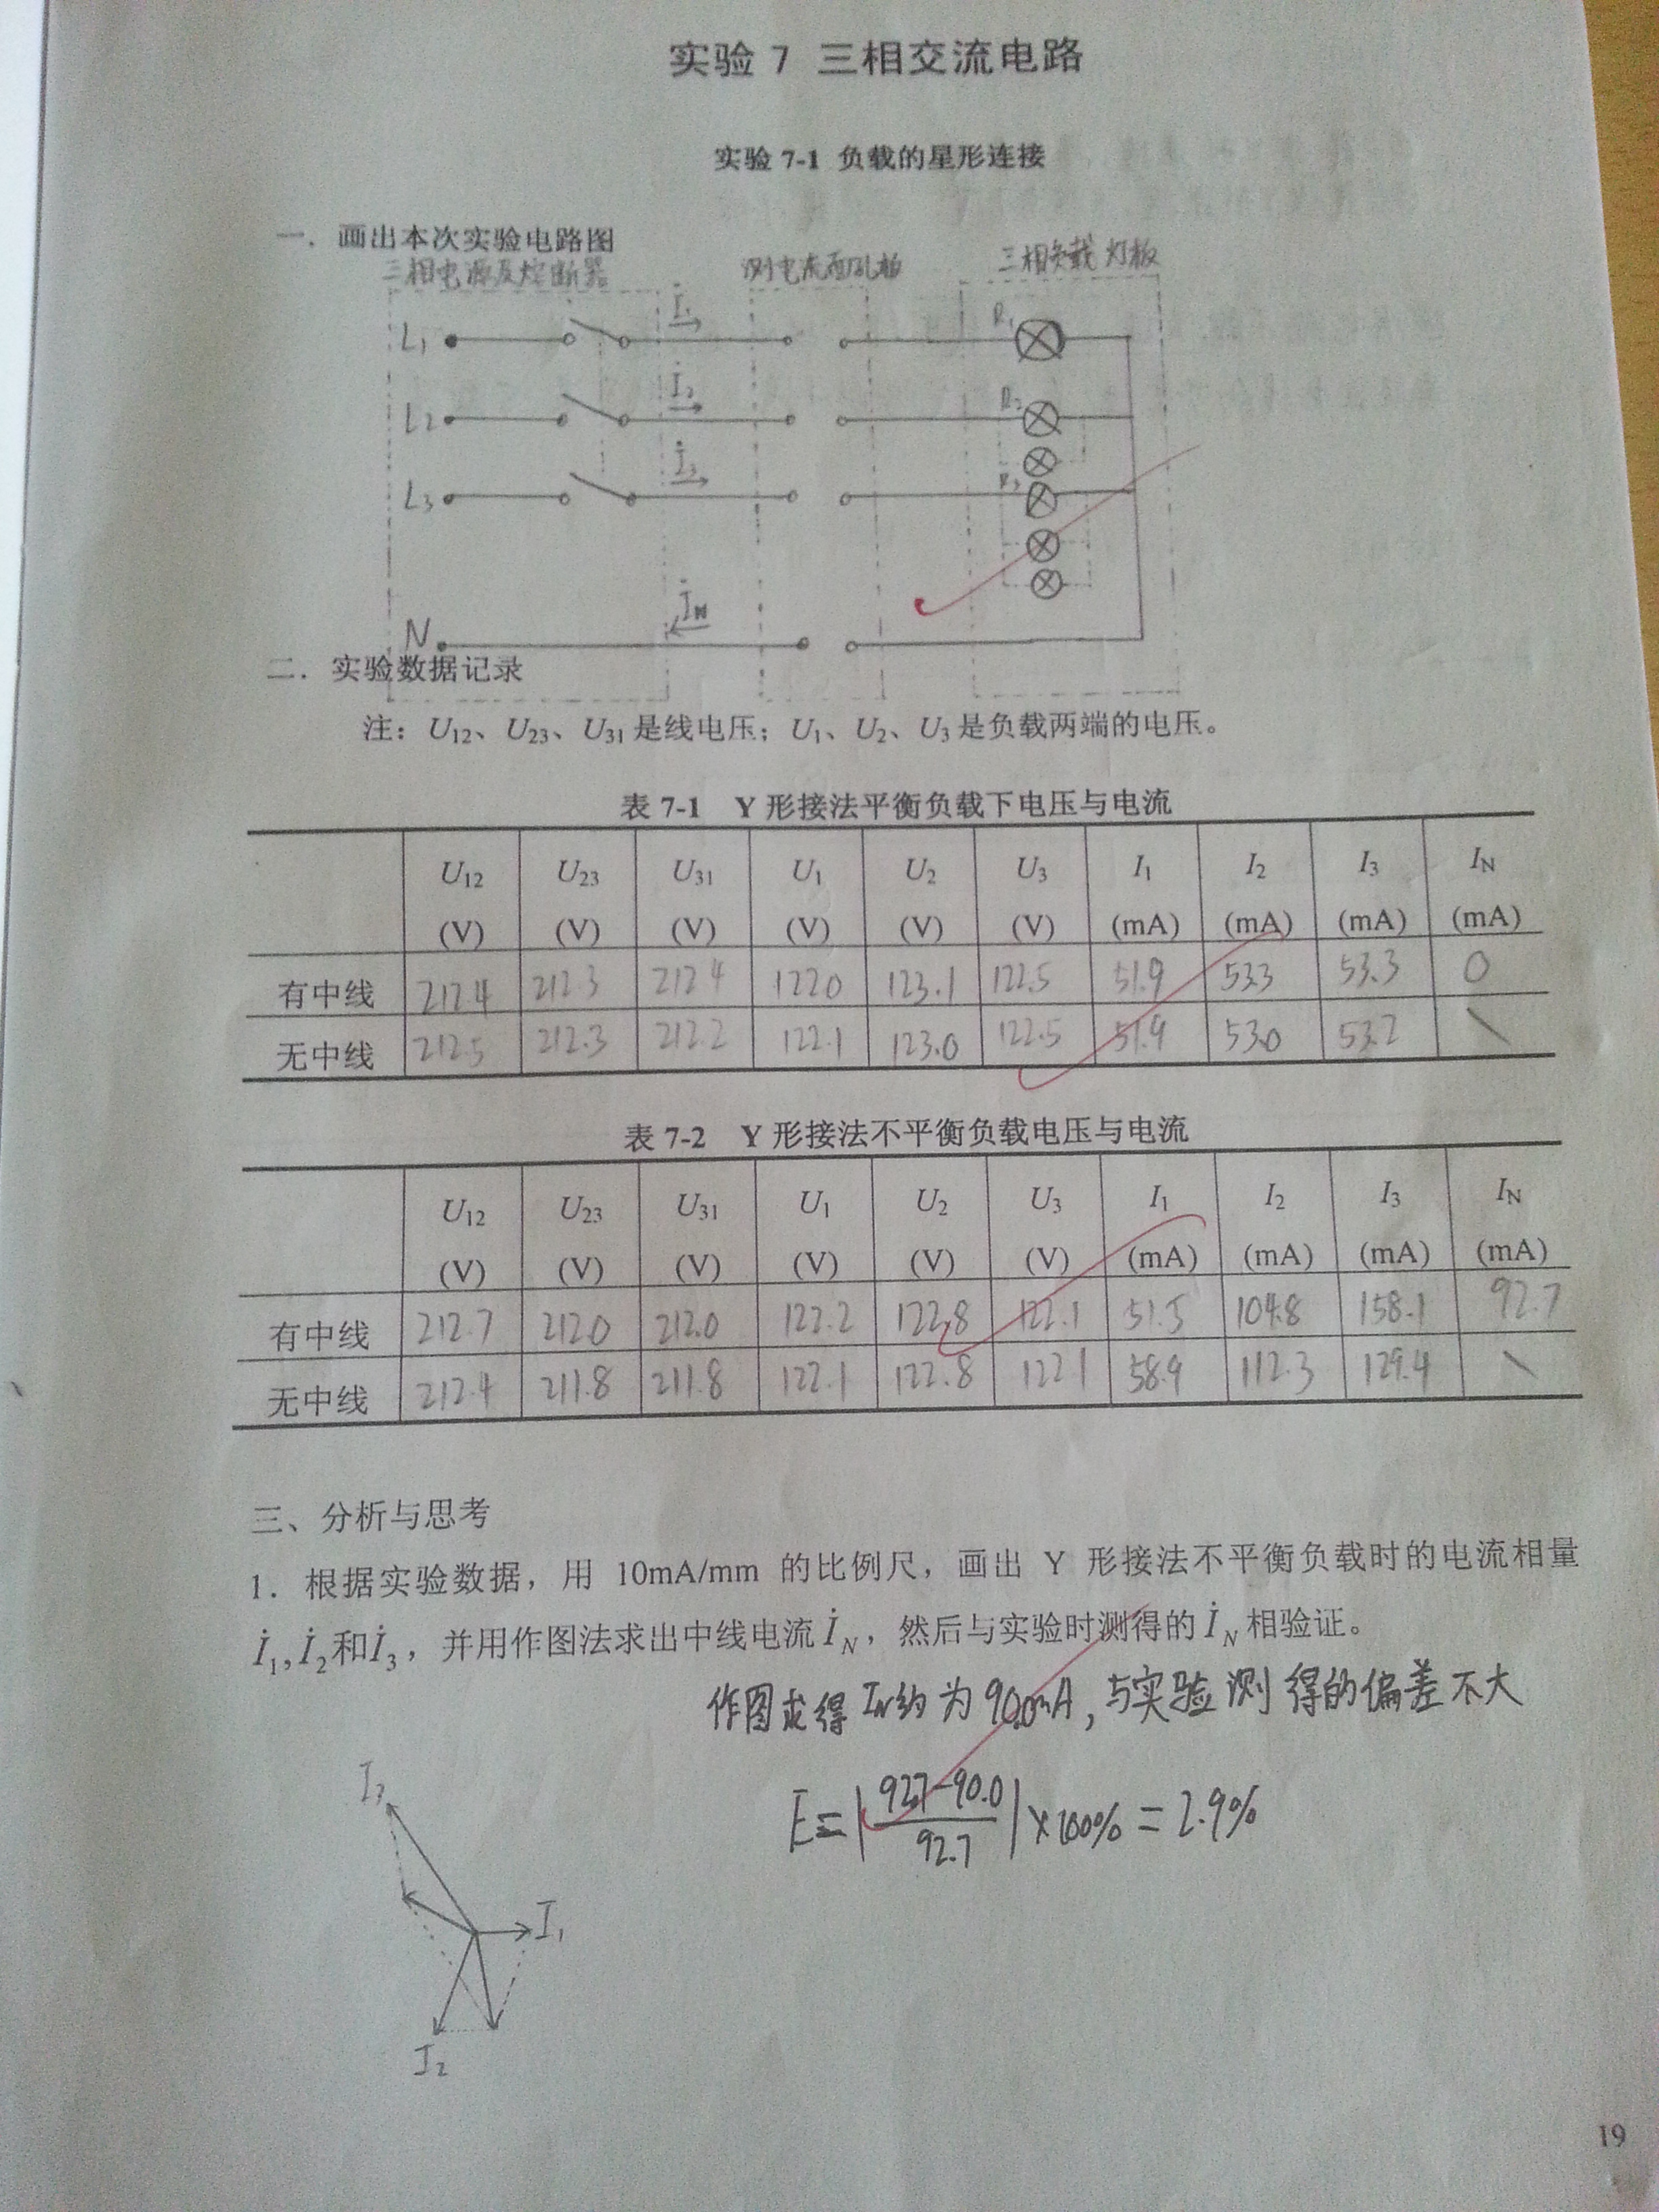 实验 7 三相交流电路
实验 7-1 负载的星形连接
一. 画出本次实验电路图
三相电源及熔断器 测电流插孔板 三相负载灯板
L₁ İ₁ R₁
L₂ İ₂ R₂
L₃ İ₃ R₃
N İN
二. 实验数据记录
注: U12、U23、U31 是线电压; U1、U2、U3 是负载两端的电压。
表 7-1 Y 形接法平衡负载下电压与电流
U12 U23 U31 U1 U2 U3 I1 I2 I3 IN
(V) (V) (V) (V) (V) (V) (mA) (mA) (mA) (mA)
有中线 212.4 212.3 212.4 122.0 123.1 122.5 51.9 53.3 53.3 0
无中线 212.5 212.3 212.2 122.1 123.0 122.5 51.9 53.0 53.2 \
表 7-2 Y 形接法不平衡负载电压与电流
U12 U23 U31 U1 U2 U3 I1 I2 I3 IN
(V) (V) (V) (V) (V) (V) (mA) (mA) (mA) (mA)
有中线 212.7 212.0 212.0 122.2 122.8 122.1 51.5 104.8 158.1 92.7
无中线 212.4 211.8 211.8 122.1 122.8 122.1 58.9 112.3 129.4 \
三、分析与思考
1. 根据实验数据，用 10mA/mm 的比例尺，画出 Y 形接法不平衡负载时的电流相量
İ1, İ2和İ3，并用作图法求出中线电流 İN，然后与实验时测得的 İN 相验证。
作图求得 IN约为90.0mA,与实验测得的偏差不大
E=|(92.7-90.0)/92.7|×100%=2.9%
I₃
I₁
I₂
19